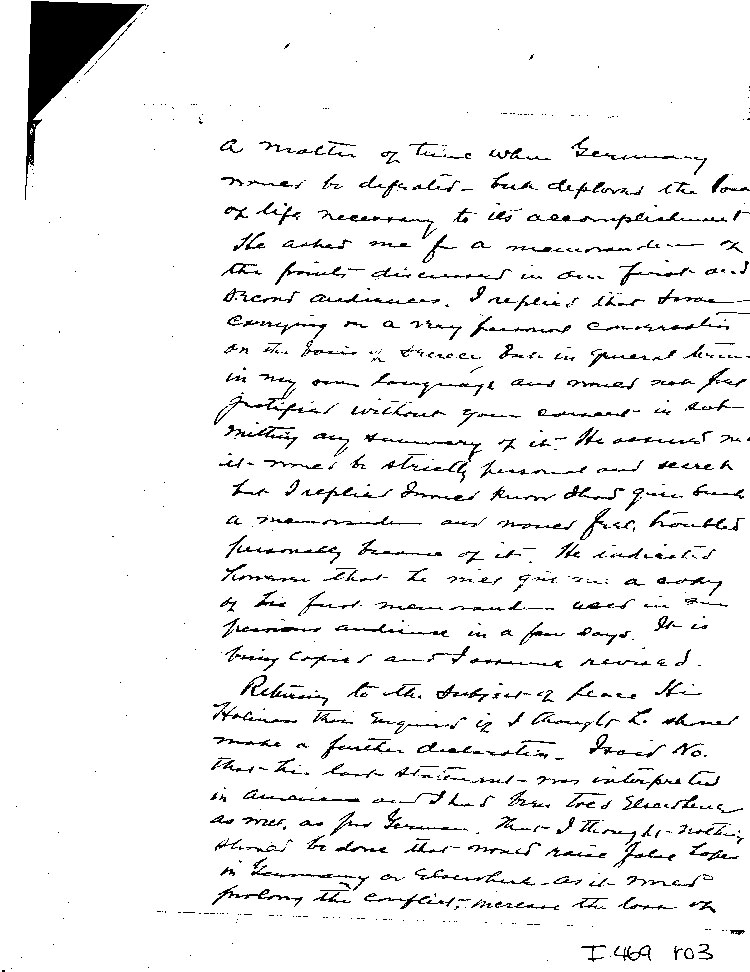 a matter of time when Germany
would be defeated - but deplored the loss
of life necessary to its accomplishment
He asked me for a memorandum of
the points discussed in our first and
second audiences. I replied that I was
carrying on a very personal conversation
on the basis of secrecy, but in general terms
in my own language and would not feel
justified without your consent in sub
mitting any summary of it. He assured me
it would be strictly personal and secret
but I replied I would know I had given such
a memorandum and would feel troubled
personally because of it. He indicated
however that he will give me a copy
of his first memorandum used in our
previous audience in a few days. It is
being copied and I assume revised.
Returning to the subject of peace His
Holiness then enquired if I thought he should
make a further declaration - I said No.
that his last statement was interpreted
in America and I had been told elsewhere
as well, as pro German. That I thought nothing
should be done that would raise false hopes
in Germany or elsewhere as it would
prolong the conflict, increase the loss of
I.469 r03